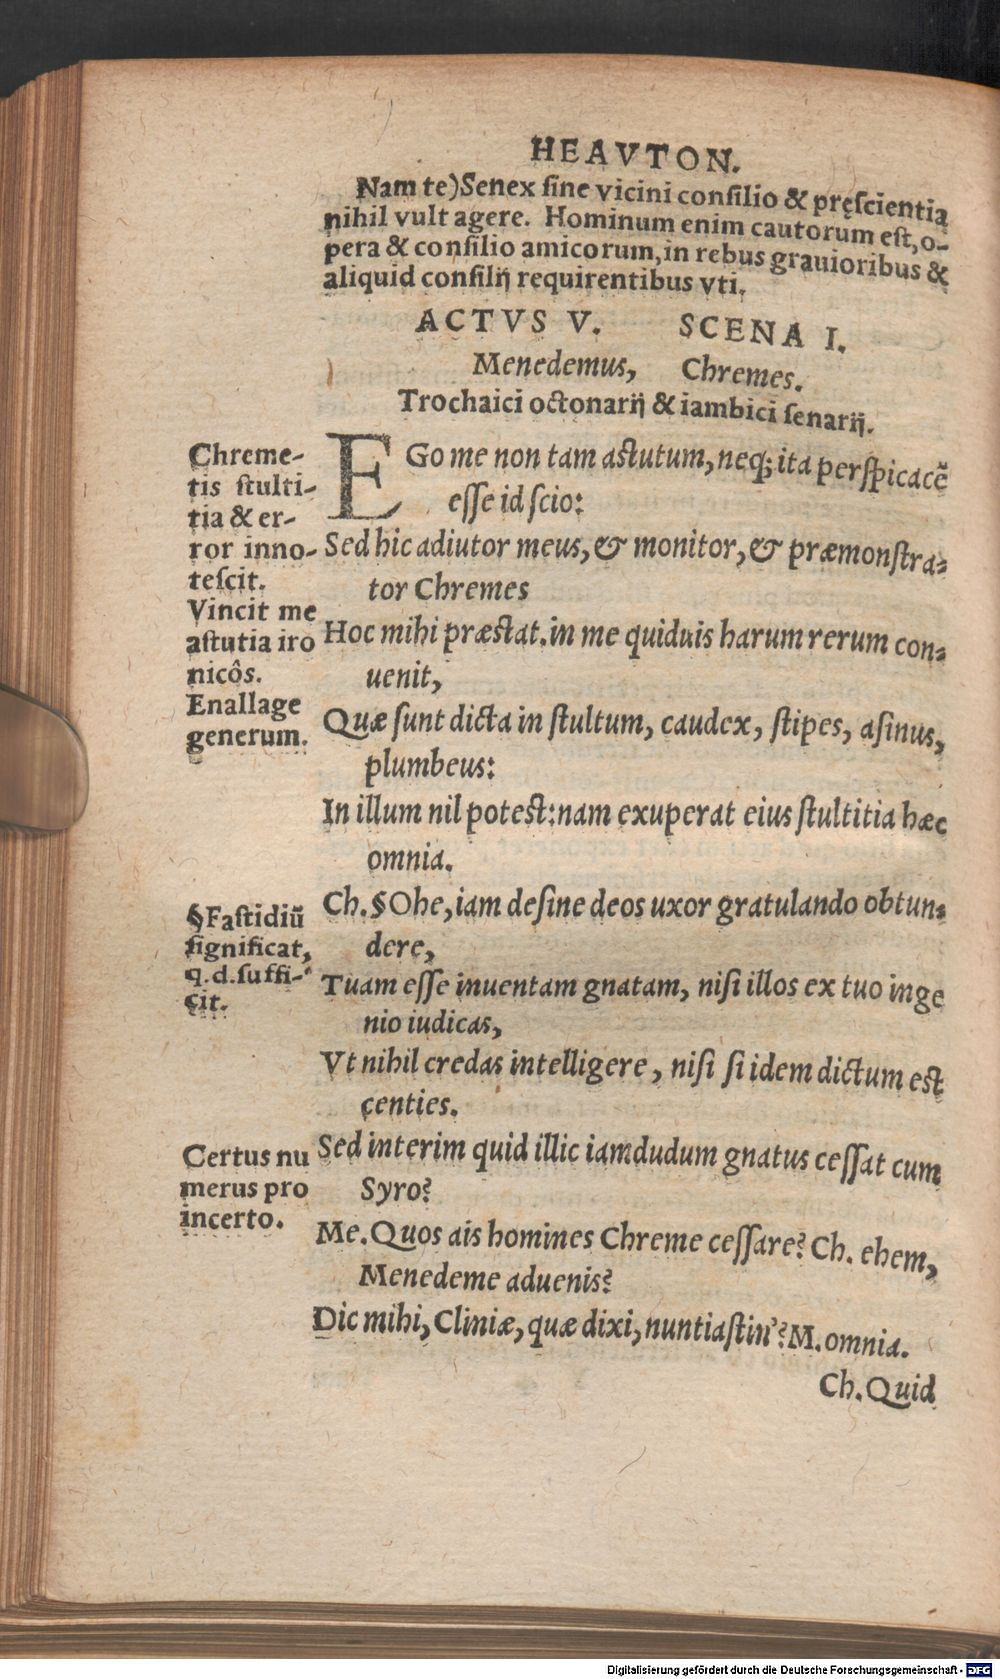 HEAVTON.
Nam te)Senex sine vicini consilio & pręscientia
nihil vult agere. Hominum enim cautorum est,o-
pera & consilio amicorum,in rebus grauioribus &
aliquid consilij requirentibus vti.
ACTVS V. SCENA I.
Menedemus, Chremes.
Trochaici octonarij & iambici senarij.
Chreme-
tis stulti-
tia & er-
ror inno-
tescit.
Vincit me
astutia iro
nicôs.
Enallage
generum.
EGo me non tam astutum,neq; ita perspicacẽ
esse id scio:
Sed hic adiutor meus,& monitor,& præmonstra-
tor Chremes
Hoc mihi præstat.in me quiduis harum rerum con-
uenit,
Quæ sunt dicta in stultum, caudex, stipes, asinus,
plumbeus:
In illum nil potest:nam exuperat eius stultitia hæc
omnia.
§Fastidiũ
significat,
q.d.suffi-
cit.
Ch.§Ohe,iam desine deos uxor gratulando obtun-
dere,
Tuam esse inuentam gnatam, nisi illos ex tuo inge
nio iudicas,
Vt nihil credas intelligere, nisi si idem dictum est
centies.
Certus nu
merus pro
incerto.
Sed interim quid illic iamdudum gnatus cessat cum
Syro?
Me.Quos ais homines Chreme cessare? Ch. ehem,
Menedeme aduenis?
Dic mihi, Cliniæ, quæ dixi, nuntiastin'? M.omnia.
Ch.Quid
Digitalisierung gefördert durch die Deutsche Forschungsgemeinschaft - DFG